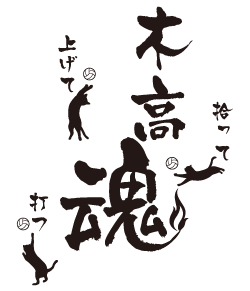 木高魂
拾って
上げて
打つ